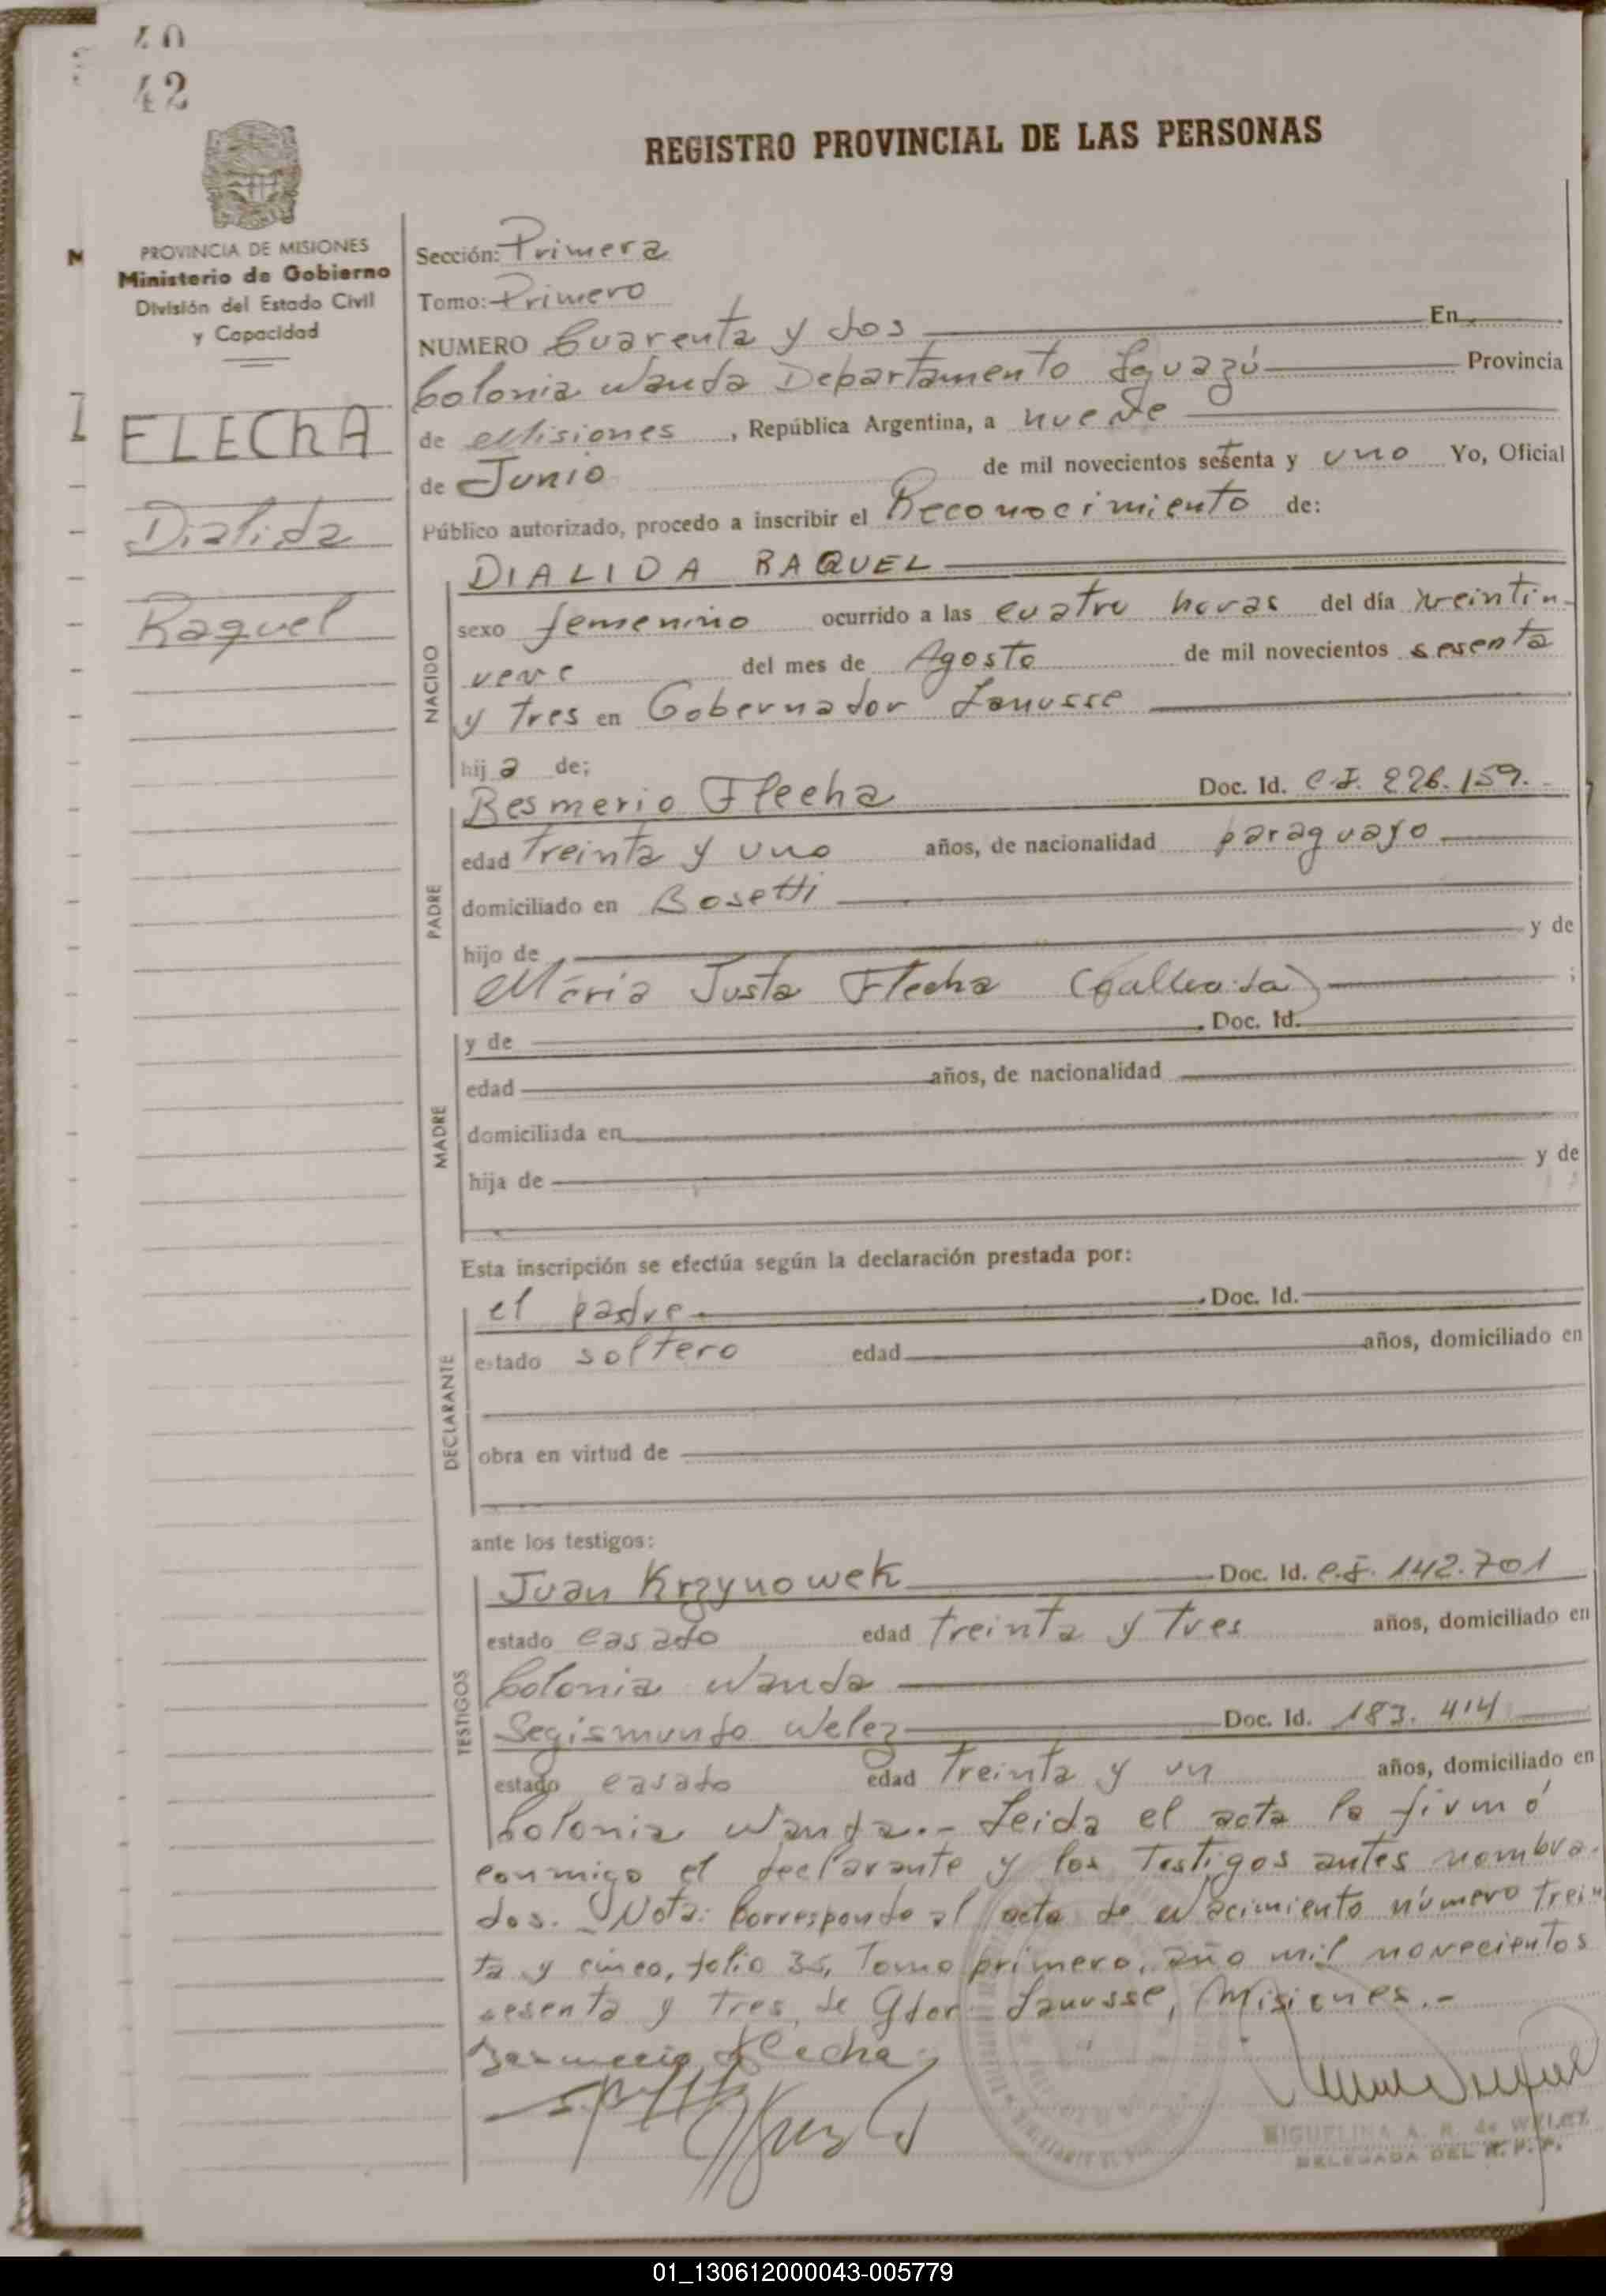 40
42
REGISTRO PROVINCIAL DE LAS PERSONAS
PROVINCIA DE MISIONES
Ministerio de Gobierno
División del Estado Civil
y Capacidad
FLECHA
Dialida
Raquel
Sección: Primera
Tomo: Primero
NUMERO Cuarenta y dos En
Colonia Wanda Departamento Iguazú Provincia
de Misiones, República Argentina, a nueve
de Junio de mil novecientos setenta y uno Yo, Oficial
Público autorizado, procedo a inscribir el Reconocimiento de:
NACIDO
DIALIDA RAQUEL
sexo femenino ocurrido a las cuatro horas del día veintin-
ueve del mes de Agosto de mil novecientos sesenta
y tres en Gobernador Lanusse
hija de;
PADRE
Besmerio Flecha Doc. Id. C.I. 226.159.
edad treinta y uno años, de nacionalidad paraguayo
domiciliado en Bosetti
hijo de y de
María Justa Flecha (fallecida) ;
MADRE
y de Doc. Id.
edad años, de nacionalidad
domiciliada en
hija de y de
Esta inscripción se efectúa según la declaración prestada por:
DECLARANTE
el padre Doc. Id.
estado soltero edad años, domiciliado en
obra en virtud de
ante los testigos:
TESTIGOS
Juan Krzynowek Doc. Id. C.I. 142.701
estado casado edad treinta y tres años, domiciliado en
Colonia Wanda
Segismundo Welez Doc. Id. 183.414
estado casado edad treinta y un años, domiciliado en
Colonia Wanda.- Leida el acta la firmó
conmigo el declarante y los testigos antes nombra-
dos. Nota: Corresponde al acta de Nacimiento número trein
ta y cinco, folio 35, Tomo primero, año mil novecientos
sesenta y tres, de Gdor. Lanusse, Misiones.-
Flecha
MIGUELINA A. R. de
DELEGADA DEL R. P. P.
01_130612000043-005779